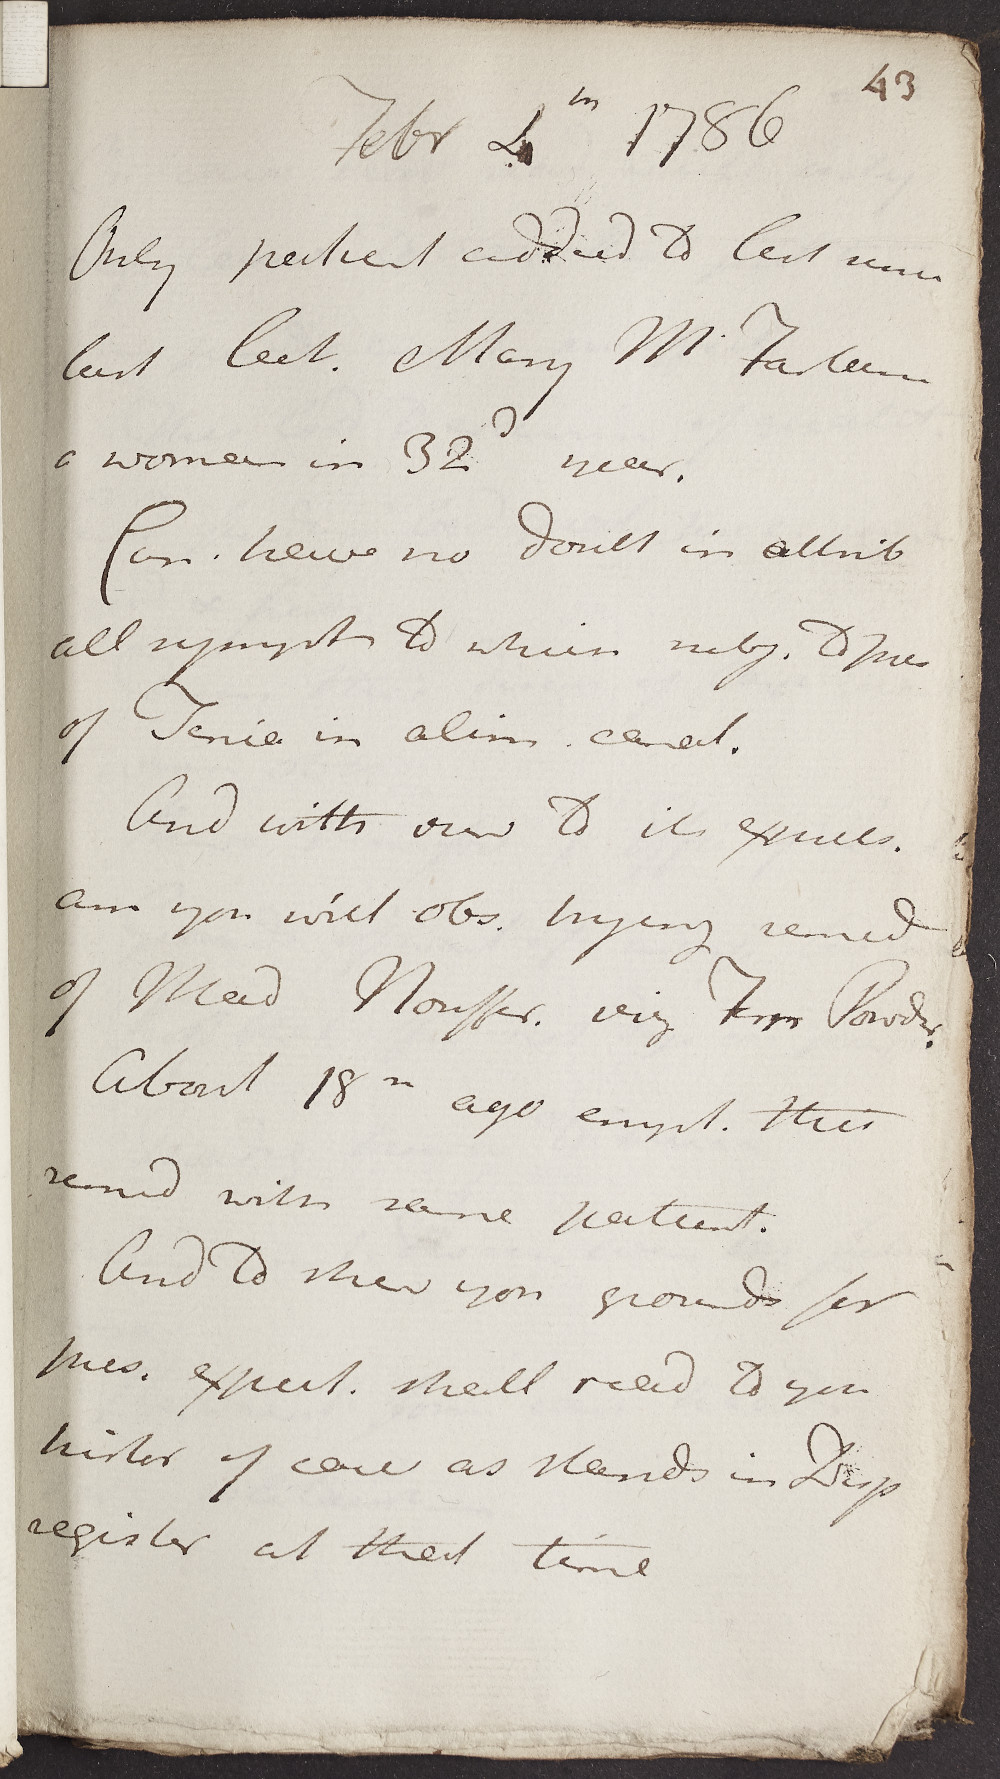 43
Febr 4th 1786
Only patient added to list since
last lect. Mary Mc Farlean
a woman in 32d year.
Can. have no doubt in attrib
all sympt to which subj. to pres
of Tenia in alim. canal.
And with view to its expuls.
am you will obs. trying remed
of Mad Nouffer. viz Fern Powder.
About 18 m ago empl. this
remed with same patient.
And to shew you grounds for
pres. expect. shall read to you
histor of case as stands in Disp
register at that time